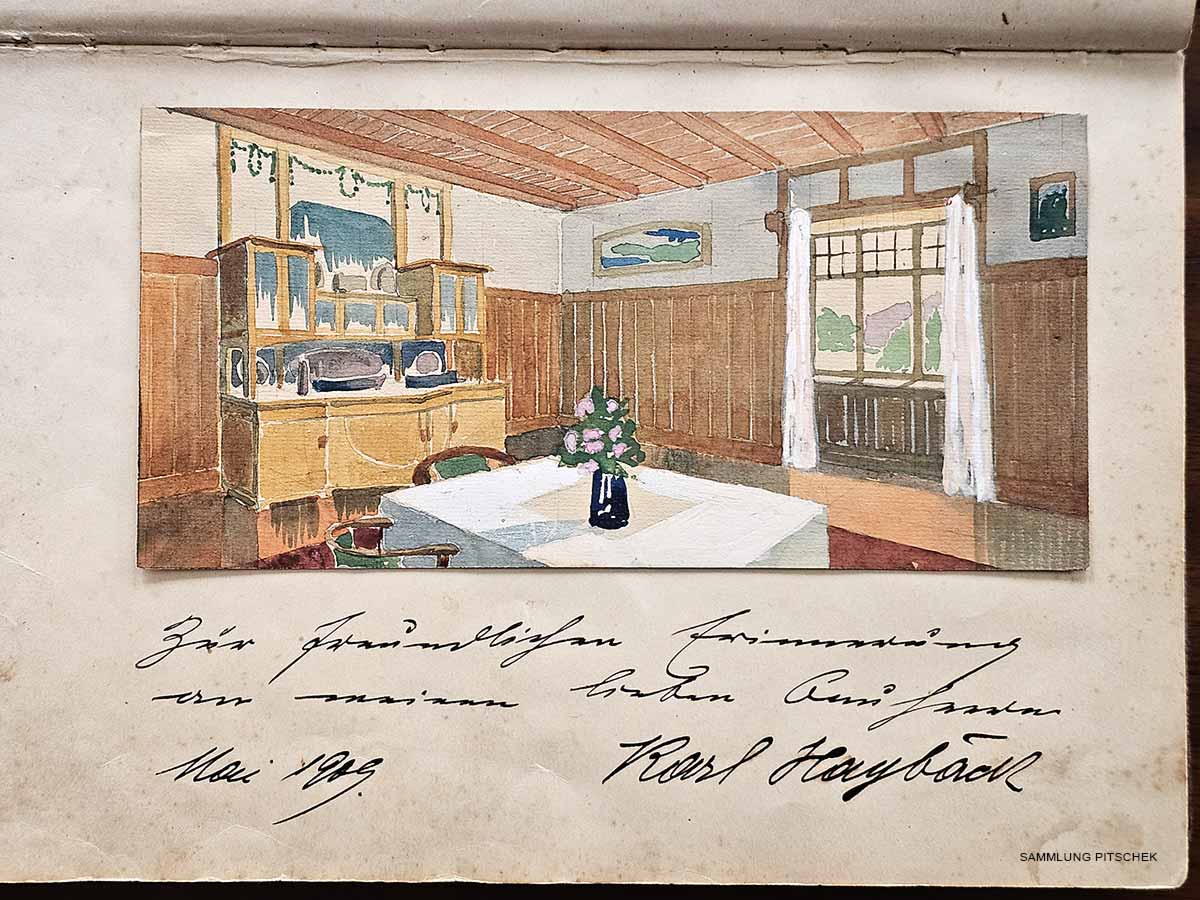 Zur freundlichen Erinnerung
an meinen lieben Bauherrn
Mai 1909.
Karl Haybäck
SAMMLUNG PITSCHEK